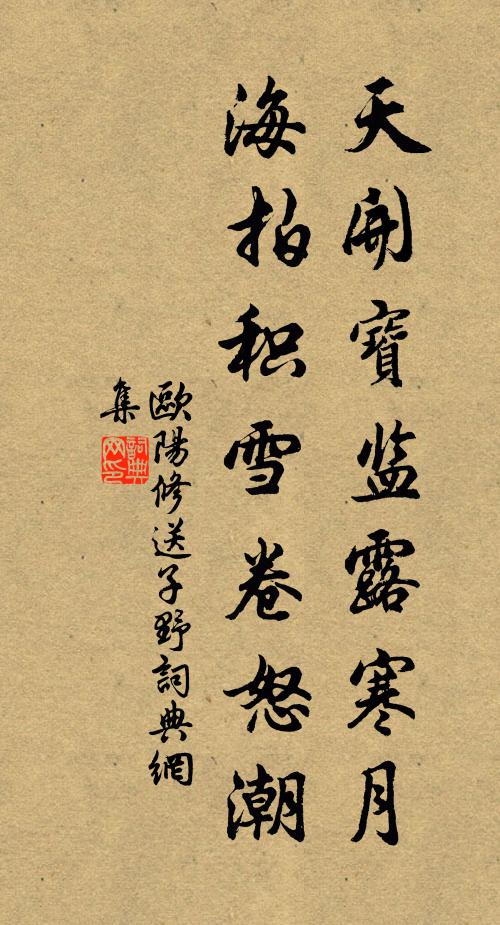 天開寶监露寒月
海拍积雪卷怒潮
歐陽修送子野詞典網
集
詞典网印